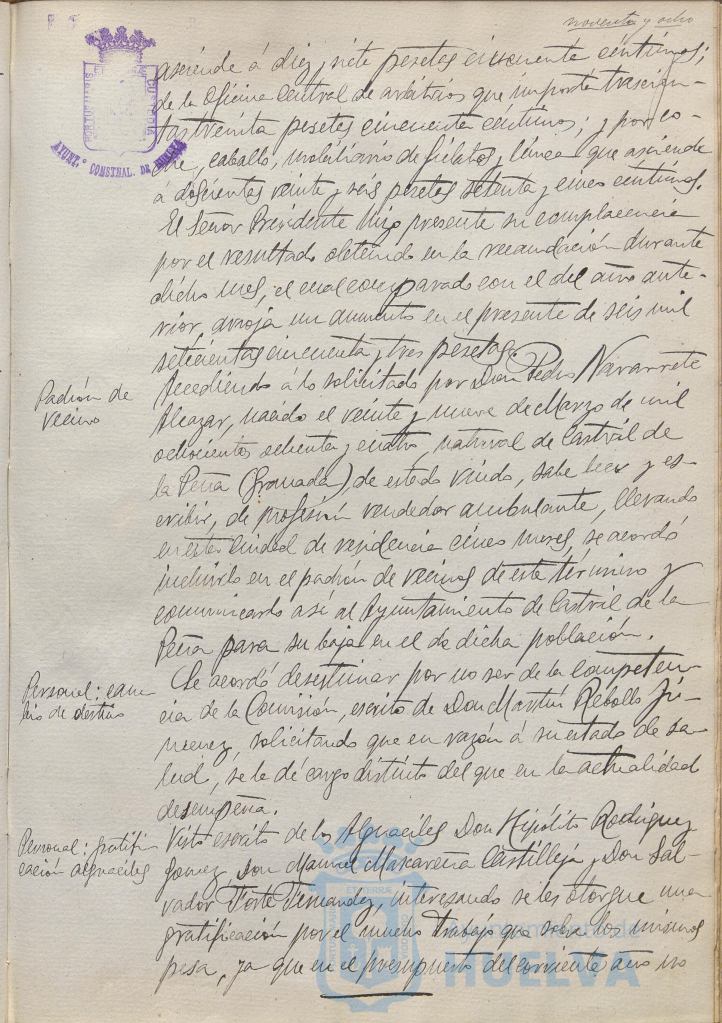 noventa y ocho
PORTUM MARIS ET TERRE CUSTODIA
AYUNT.º CONSTNAL. DE HUELVA
asciende á diez y siete pesetas cincuenta céntimos;
de la Oficina Central de arbitrios que importa trescien-
tas treinta pesetas cincuenta céntimos; y por co-
che, caballo, mobiliario de fielatos y línea que asciende
á doscientas veinte y seis pesetas setenta y cinco céntimos.
El Señor Presidente hizo presente su complacencia
por el resultado obtenido en la recaudación durante
dicho mes, el cual comparado con el del año ante-
rior, arroja un aumento en el presente de seis mil
setecientas cincuenta y tres pesetas.
Padrón de
vecinos
Accediendo á lo solicitado por Don Pedro Navarrete
Alcazar, nacido el veinte y nueve de Marzo de mil
ochocientos ochenta y cuatro, natural de Castril de
la Peña (Granada), de estado viudo, sabe leer y es-
cribir, de profesión vendedor ambulante, llevando
en esta Ciudad de residencia cinco meses, se acordó
incluirlo en el padrón de vecinos de este término y
comunicarlo así al Ayuntamiento de Castril de la
Peña para su baja en el de dicha población.
Personal: cam-
bio de destino
Se acordó desestimar por no ser de la competen-
cia de la Comisión, escrito de Don Martín Rebollo Ji-
menez, solicitando que en razón á su estado de sa-
lud, se le dé cargo distinto del que en la actualidad
desempeña.
Personal: gratifi-
cación alguaciles
Visto escrito de los Alguaciles Don Hipólito Rodriguez
Gomez, Don Manuel Macareña Castilleja y Don Sal-
vador Forte Fernandez, interesando se les otorgue una
gratificación por el mucho trabajo que sobre los mismos
pesa, ya que en el presupuesto del corriente año no
Ayuntamiento de
HUELVA